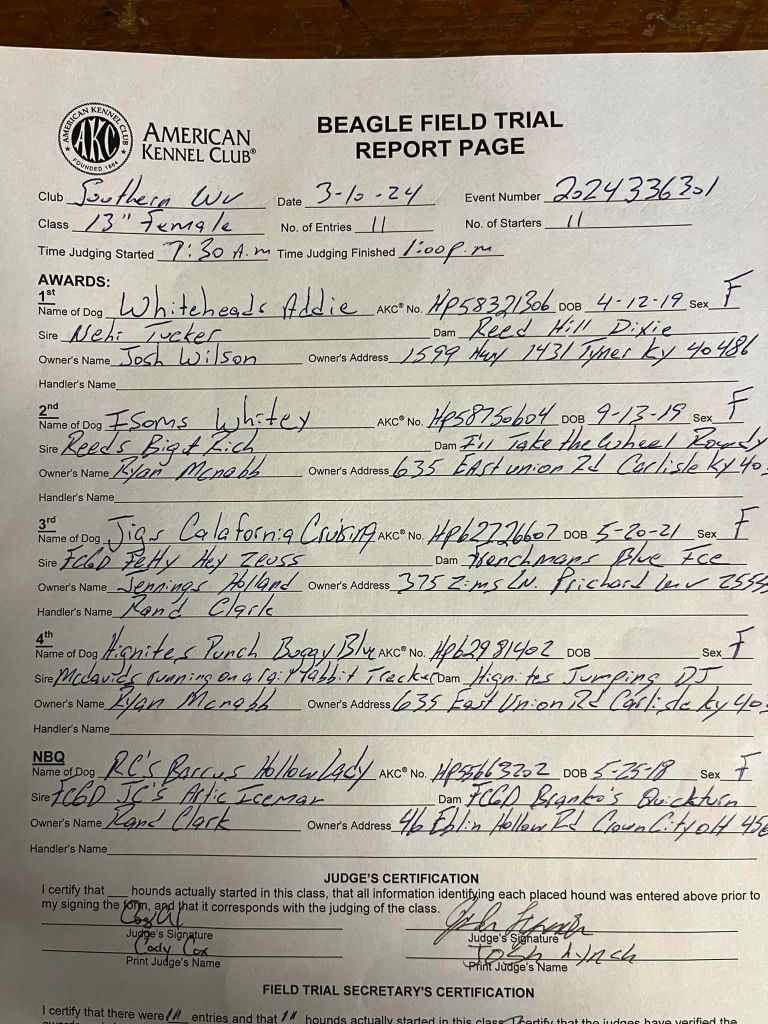 AMERICAN KENNEL CLUB
AKC
FOUNDED 1884
AMERICAN
KENNEL CLUB®
BEAGLE FIELD TRIAL
REPORT PAGE
Club Southern WV Date 3-10-24 Event Number 2024336301
Class 13" Female No. of Entries 11 No. of Starters 11
Time Judging Started 7:30 A.m Time Judging Finished 1:00 p.m
AWARDS:
1st
Name of Dog Whiteheads Addie AKC® No. HP58321306 DOB 4-12-19 Sex F
Sire Nehi Tucker Dam Reed Hill Dixie
Owner's Name Josh Wilson Owner's Address 1599 Hwy 1431 Tyner Ky 40486
Handler's Name
2nd
Name of Dog Isoms Whitey AKC® No. HP58750604 DOB 9-13-19 Sex F
Sire Reeds Big & Rich Dam I'll Take the Wheel Rowdy
Owner's Name Ryan Mcnabb Owner's Address 635 East union Rd Carlisle Ky 40
Handler's Name
3rd
Name of Dog Jigs Calafornia Cruising AKC® No. HP62726607 DOB 5-20-21 Sex F
Sire FCGD Fetty Hey Zeuss Dam Frenchmans Blue Ice
Owner's Name Jennings Holland Owner's Address 375 Zims LN. Prichard WV 2555
Handler's Name Rand Clark
4th
Name of Dog Hignites Punch Buggy Blue AKC® No. HP62981402 DOB Sex F
Sire Mcdavids running on a Rabbit Tracker Dam Hignites Jumping DJ
Owner's Name Ryan Mcnabb Owner's Address 635 East Union Rd Carlisle Ky 40
Handler's Name
NBQ
Name of Dog RC's Barcus Hollow Lady AKC® No. HP55663202 DOB 5-25-18 Sex F
Sire FCGD JC's Artic Iceman Dam FCGD Branko's Quickturn
Owner's Name Rand Clark Owner's Address 46 Eblin Hollow Rd Crown City OH 456
Handler's Name
JUDGE'S CERTIFICATION
I certify that hounds actually started in this class, that all information identifying each placed hound was entered above prior to
my signing the form, and that it corresponds with the judging of the class.
Judge's Signature Judge's Signature
Cody Cox Josh Lynch
Print Judge's Name Print Judge's Name
FIELD TRIAL SECRETARY'S CERTIFICATION
I certify that there were 11 entries and that 11 hounds actually started in this class. I certify that the judges have verified the